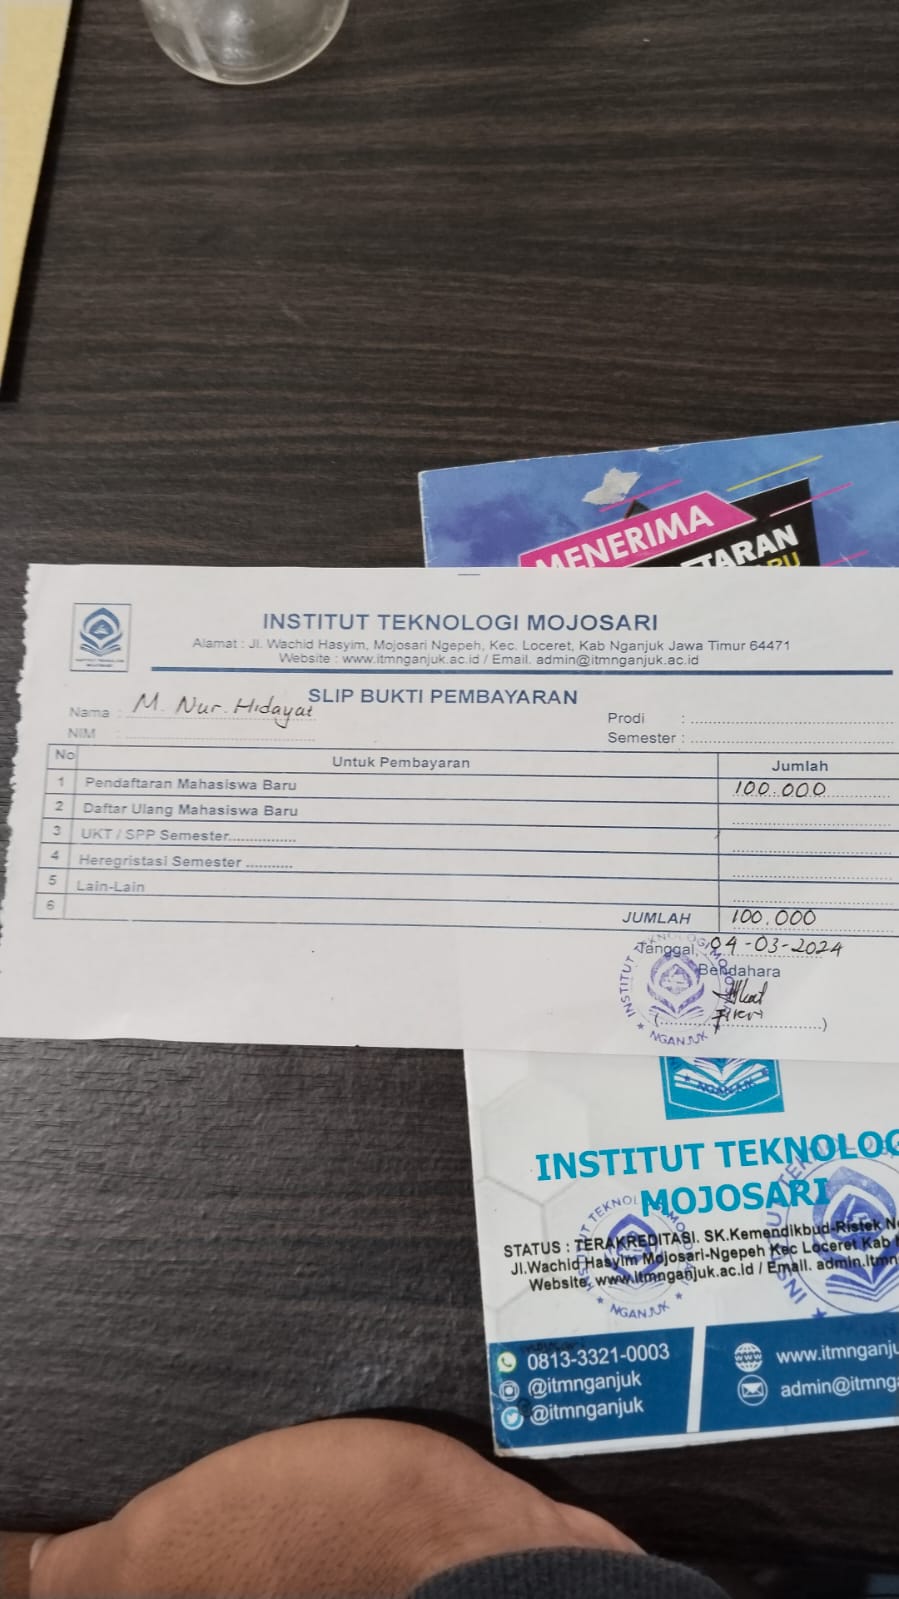 MENERIMA
INSTITUT TEKNOLOGI MOJOSARI
Alamat : Jl. Wachid Hasyim, Mojosari Ngepeh, Kec. Loceret, Kab Nganjuk Jawa Timur 64471
Website : www.itmnganjuk.ac.id / Email. admin@itmnganjuk.ac.id
INSTITUT TEKNOLOGI
MOJOSARI
SLIP BUKTI PEMBAYARAN
Nama : M. Nur Hidayat
Prodi : ..........
NIM : ..........
Semester : ..........
No Untuk Pembayaran Jumlah
1 Pendaftaran Mahasiswa Baru 100.000
2 Daftar Ulang Mahasiswa Baru
3 UKT / SPP Semester................
4 Heregristasi Semester ...........
5 Lain-Lain
6 JUMLAH 100.000
Tanggal, 04-03-2024
Bendahara
INSTITUT TEKNOLOGI MOJOSARI
NGANJUK
NGANJUK
INSTITUT TEKNOLOG
MOJOSARI
STATUS : TERAKREDITASI. SK.Kemendikbud-Ristek
Jl.Wachid Hasyim Mojosari-Ngepeh Kec Loceret Kab
Website. www.itmnganjuk.ac.id / Email. admin.itmn
NGANJUK
0813-3321-0003
@itmnganjuk
@itmnganjuk
www.itmnganju
admin@itmnga